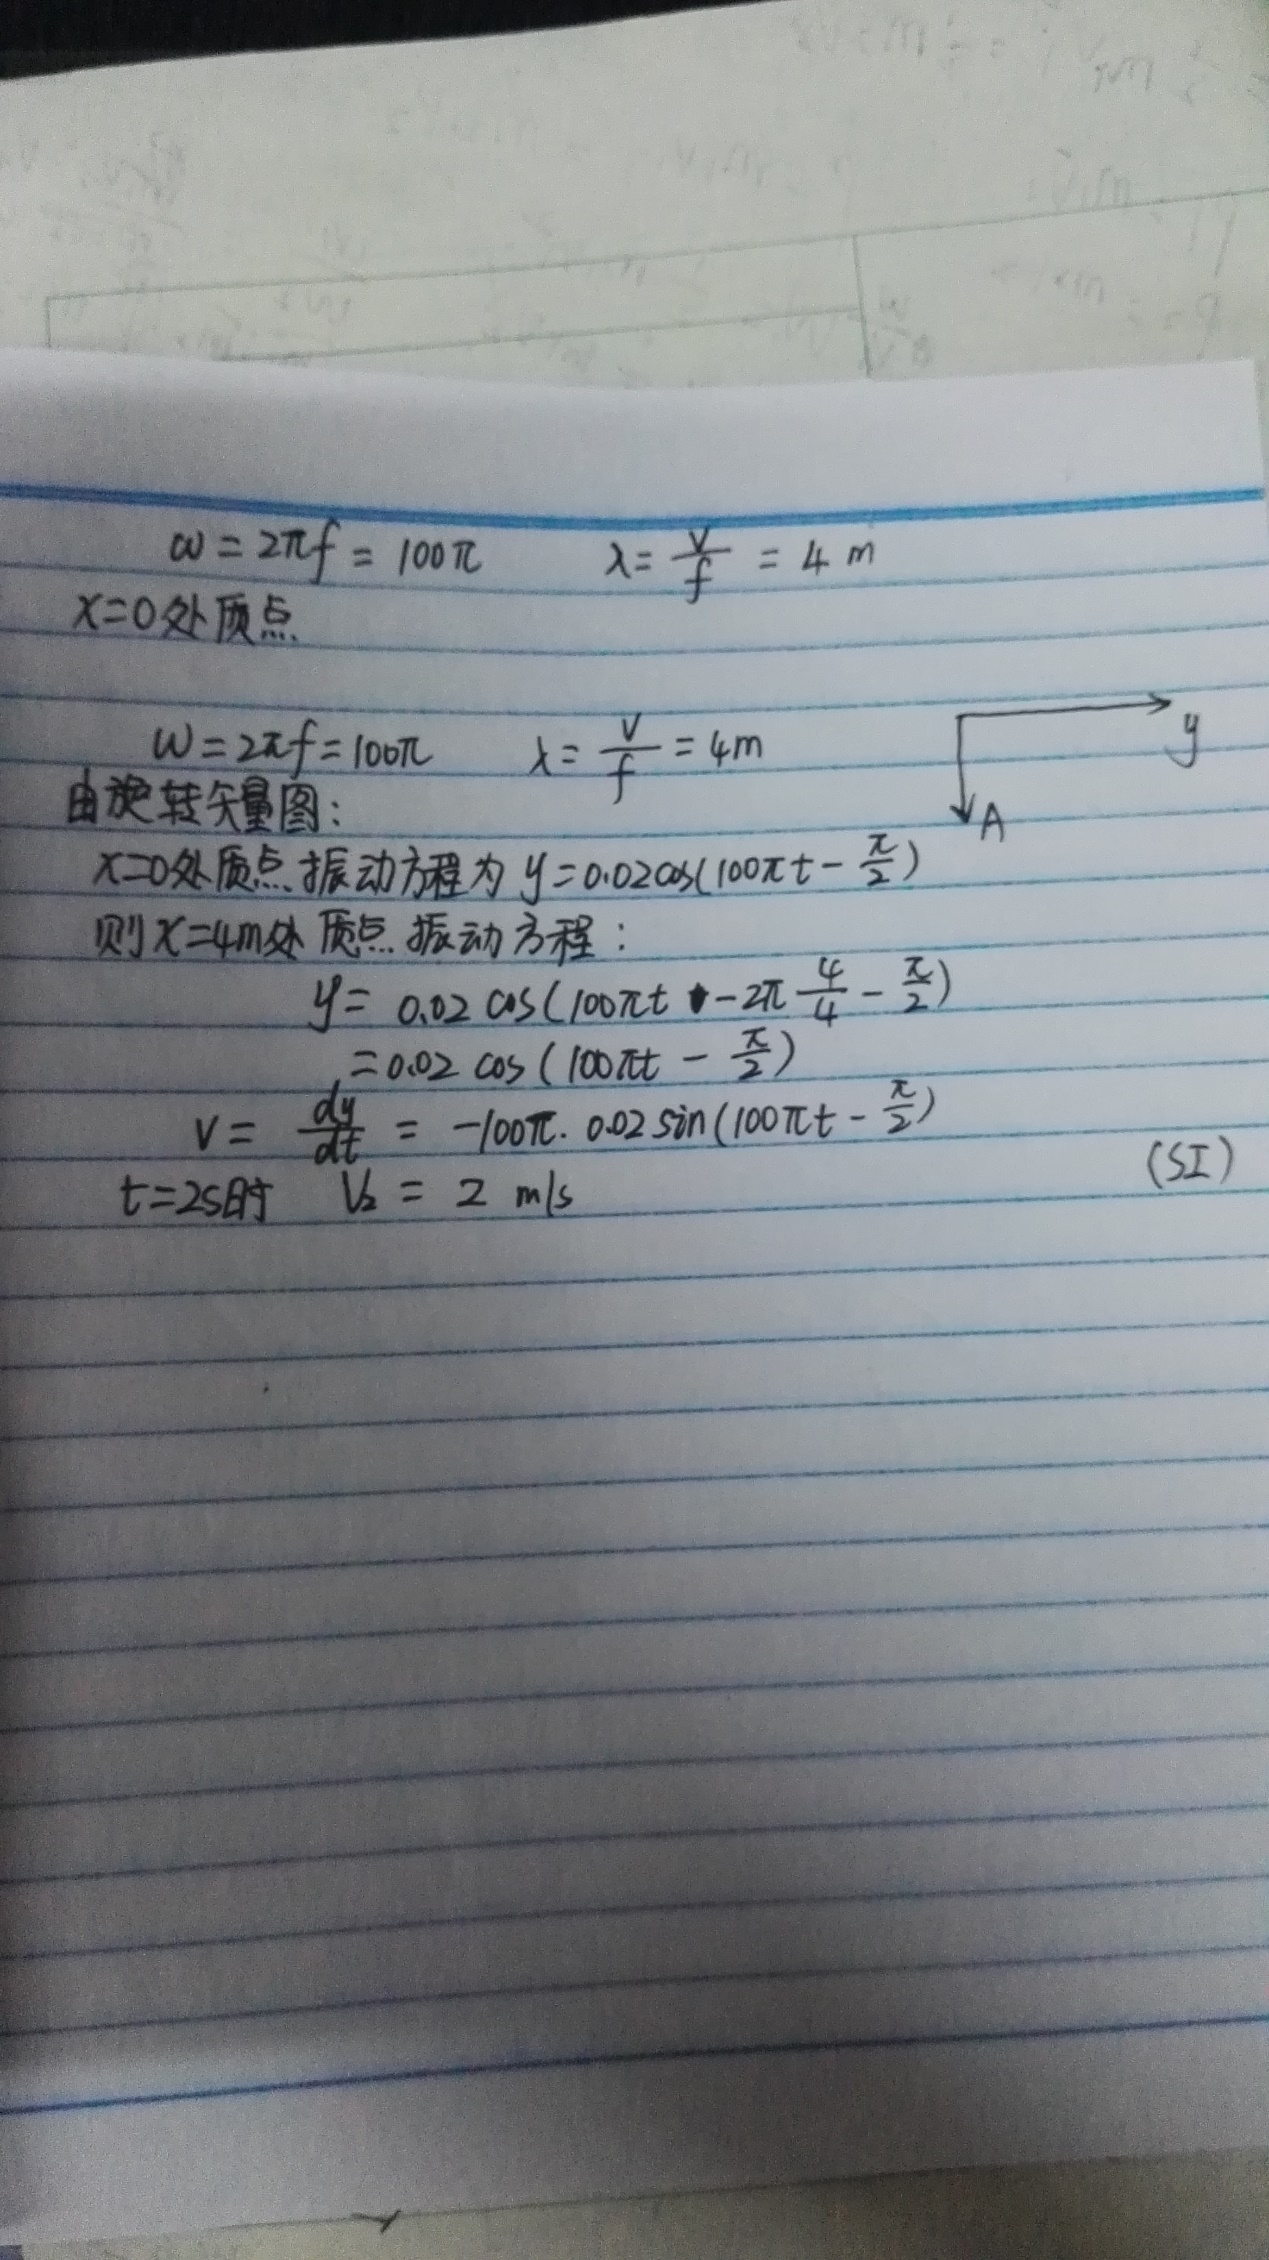 ω = 2πf = 100π λ = v/f = 4 m
x=0处质点
ω = 2πf = 100π λ = v/f = 4m
y
由旋转矢量图:
A
x=0处质点振动方程为 y=0.02cos(100πt - π/2)
则x=4m处质点振动方程:
y = 0.02 cos(100πt - 2π 4/4 - π/2)
= 0.02 cos (100πt - π/2)
v = dy/dt = -100π. 0.02 sin(100πt - π/2)
(SI)
t=2s时 V₂ = 2 m/s